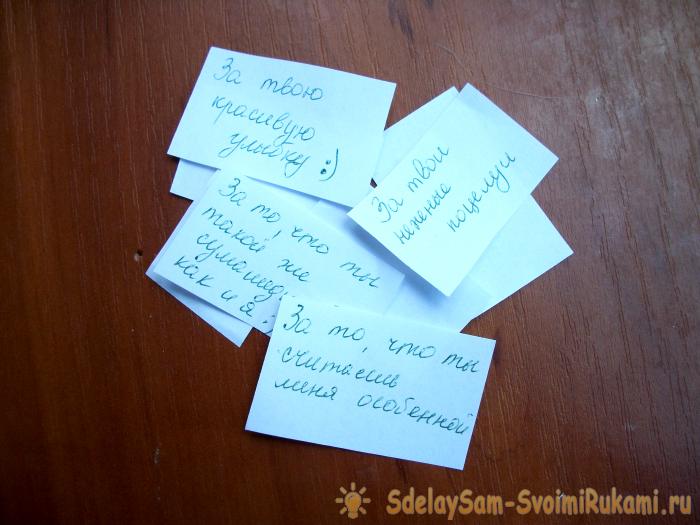 За твою
красивую
улыбку :)
За твои
нежные
поцелуи
За то, что ты
такой же
как и я :)
За то, что ты
считаешь
меня особенной
SdelaySam-SvoimiRukami.ru